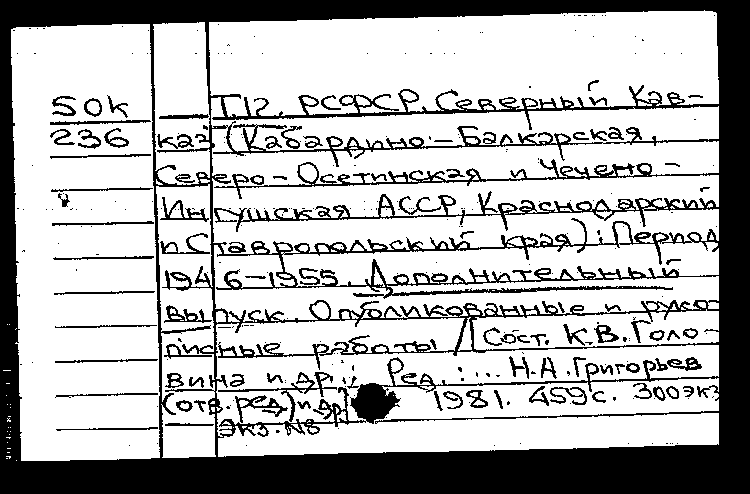 50к Т.12. РСФСР. Северный Кав-
236 каз (Кабардино-Балкарская,
Северо-Осетинская и Чечено-
8 Ингушская АССР, Краснодарский
и Ставропольский края): Период
1946-1955. Дополнительный
выпуск. Опубликованные и руко-
писные работы /[Сост. К.В. Голо-
вина и др.; Ред.:... Н.А. Григорьев
(отв. ред.) и др.] 1981. 459с. 300экз
Экз. N8